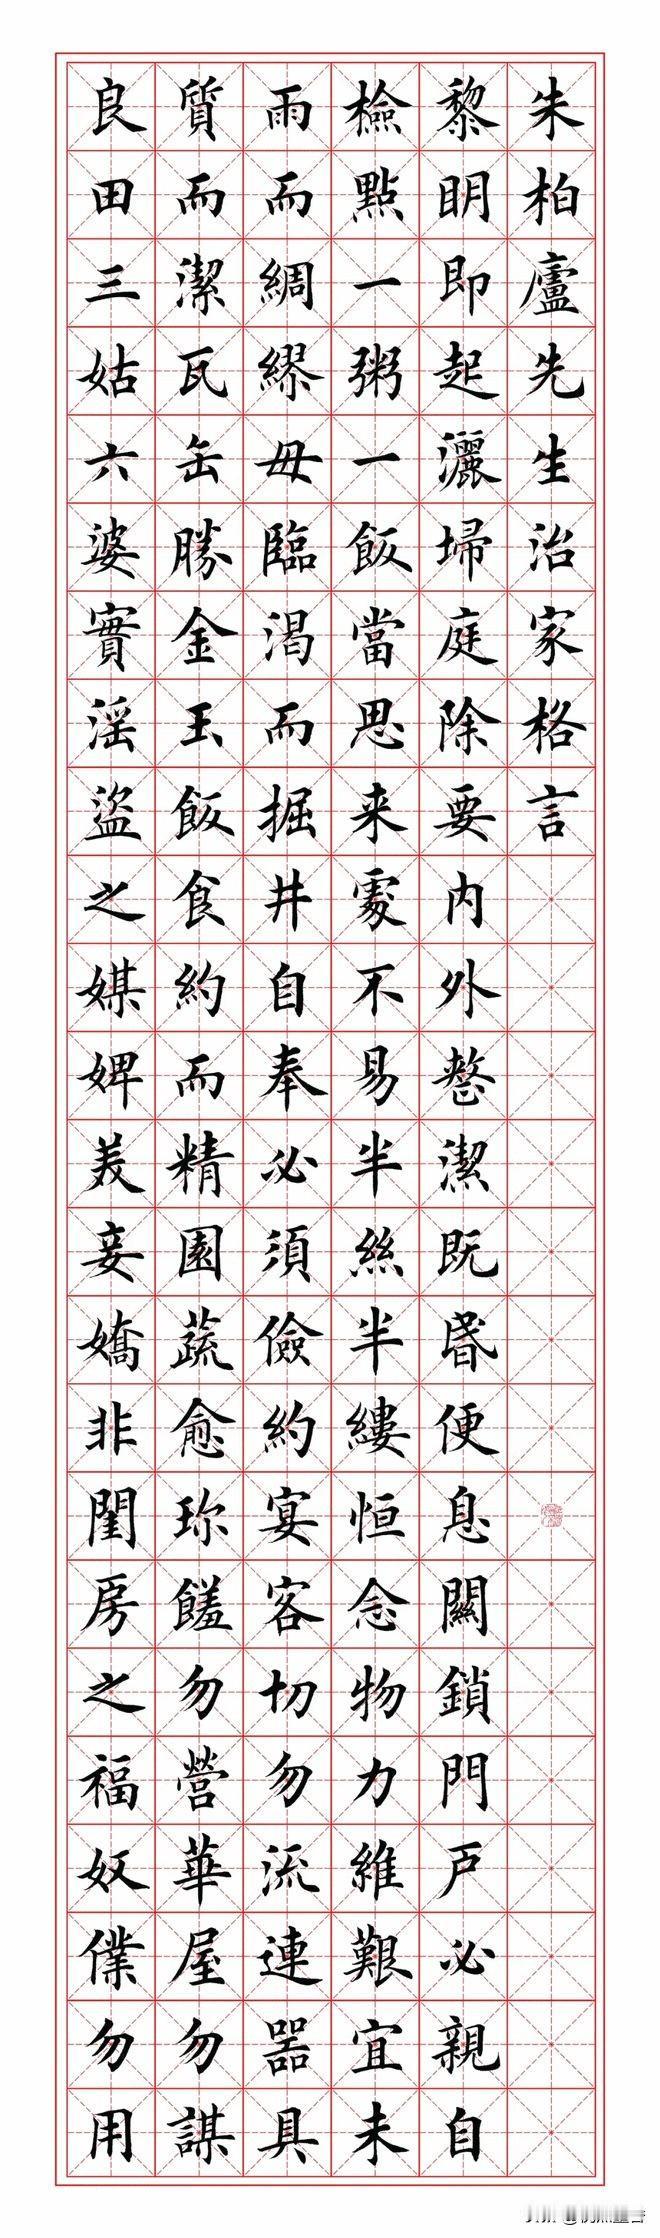 朱柏廬先生治家格言
黎明即起灑埽庭除要内外整潔既昏便息關鎖門户必親自
檢點一粥一飯當思来處不易半絲半縷恒念物力維艱宜未
雨而綢繆毋臨渴而掘井自奉必須儉約宴客切勿流連器具
質而潔瓦缶勝金玉飯食約而精園蔬愈珎饈勿營華屋勿謀
良田三姑六婆實淫盜之媒婢美妾嬌非閨房之福奴僕勿用